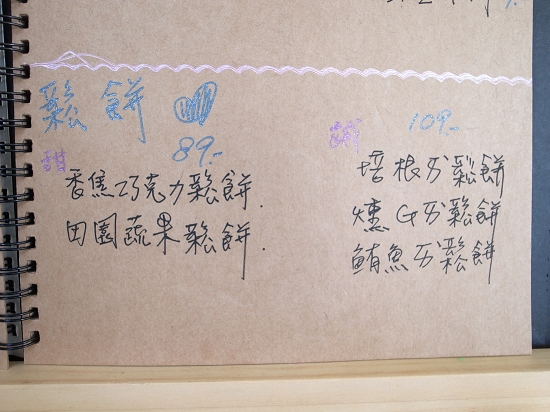 鬆餅
甜 89.-
香蕉巧克力鬆餅.
田園蔬果鬆餅.
鹹 109.-
培根ㄞ鬆餅
燻Gㄞ鬆餅
鮪魚ㄞ鬆餅